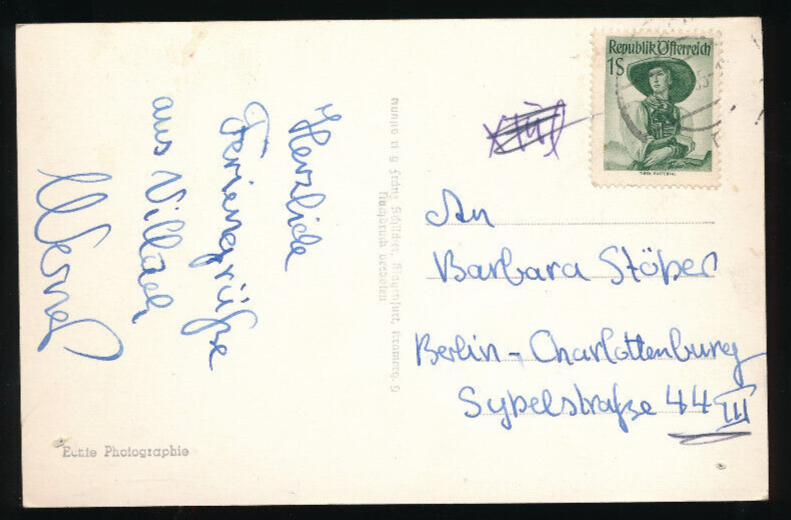 Herzliche
Feriengrüße
aus Villach
Werner
Echte Photographie
Nachdruck verboten
Republik Österreich
1S
An
Barbara Stöber
Berlin - Charlottenburg
Sybelstraße 44 III